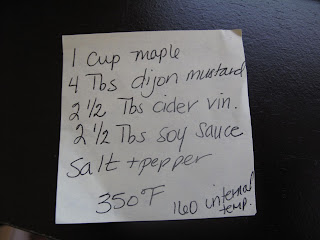 1 Cup maple
4 Tbs dijon mustard
2 1/2 Tbs cider vin.
2 1/2 Tbs soy sauce
Salt + pepper
350°F
160 internal
temp.